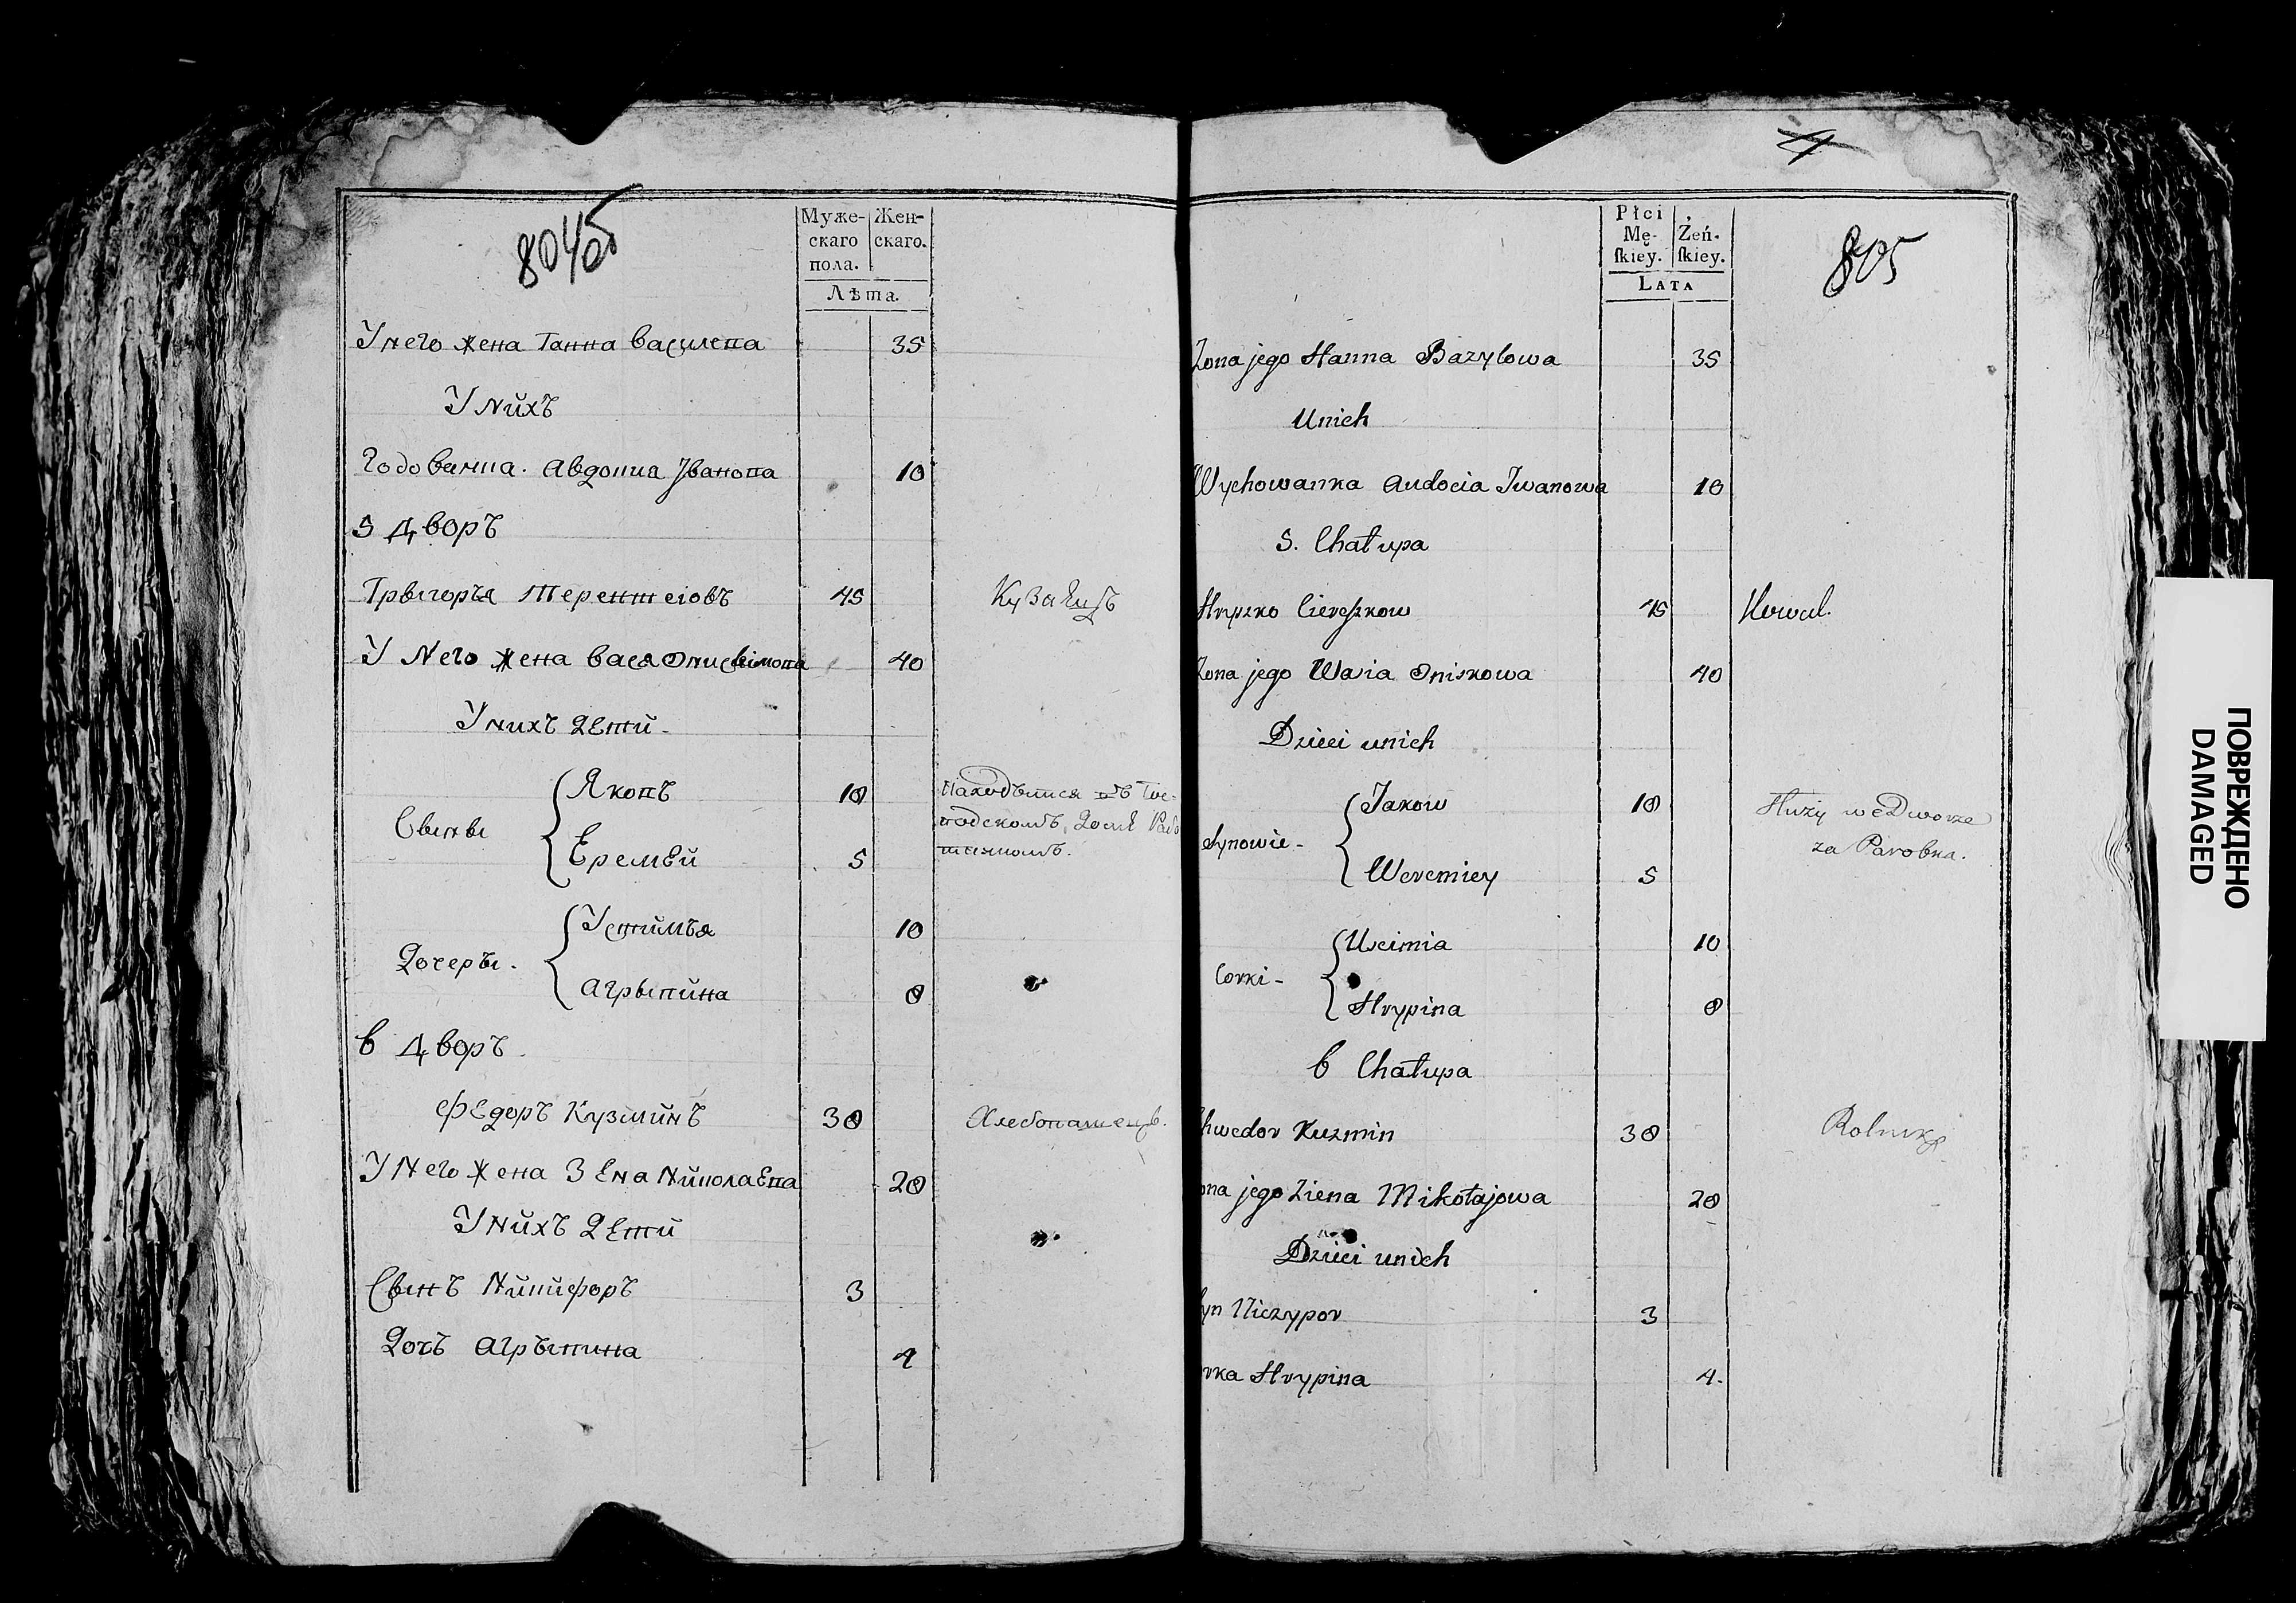 8045
Муже-
скаго
пола.
Жен-
скаго.
Лѣта.
У него жена Ганна Василева 35
У нихъ
Годованка. Авдотиа Иванова 10
5 Дворъ
Грыгоръя Терентеіовъ 45 Кузнецъ
У Него жена Вася Онисѣімова 40
У нихъ дети.
Сыны
Яковъ 18
Еремѣй 5
Находътся въ Гос-
подскомъ доме Рабо
тникомъ.
Дочеры.
Устимъя 10
Агрыпина 8
6 Дворъ.
Федоръ Кузминъ 38 Хлебопашецъ.
У Него жена Зена Николаева 28
У нихъ дети
Сынъ Никифоръ 3
Дочъ Агръпина 4
805
Płci
Mę-
ſkiey.
Żeń-
ſkiey.
LATA
Zona jego Hanna Bazylowa 35
Unich
Wychowanka Audocia Iwanowa 10
5. Chałupa
Hryzko Ciereszkow 45 Kowal.
Zona jego Wasia Oniskowa 40
Dzieci unich
Synowie -
Jakow 18
Weremiey 5
Służy we Dworze
za Parobka.
Corki -
Uscimia 10
Hrypina 8
6 Chałupa
Chwedor Kuzmin 38 Rolnik
ona jego Ziena Mikołajowa 28
Dzieci unich
yn Niczypor 3
rka Hrypina 4.
ПОВРЕЖДЕНО
DAMAGED